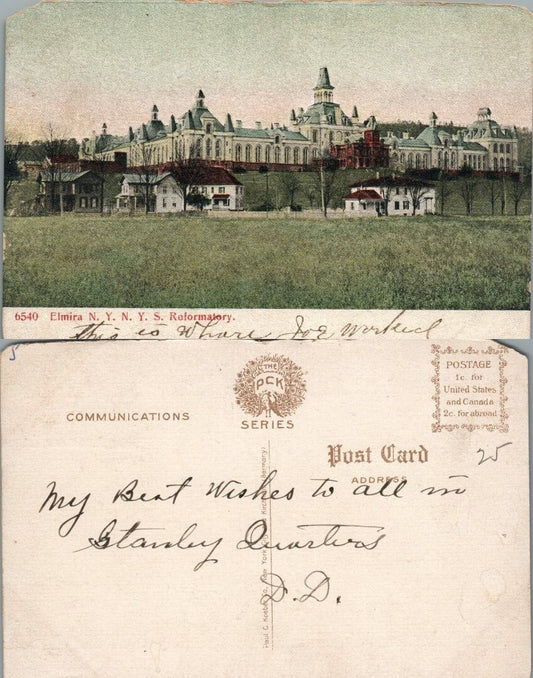 6540 Elmira N. Y. N. Y. S. Reformatory.
this is Where Joe Worked
5
COMMUNICATIONS
THE
PCK
SERIES
POSTAGE
1c. for
United States
and Canada
2c. for abroad
Post Card
ADDRESS
25
My Best Wishes to all in
Stanley Quarters
D. D.
Paul C. Koeber Co. New York Kirchheim Germany